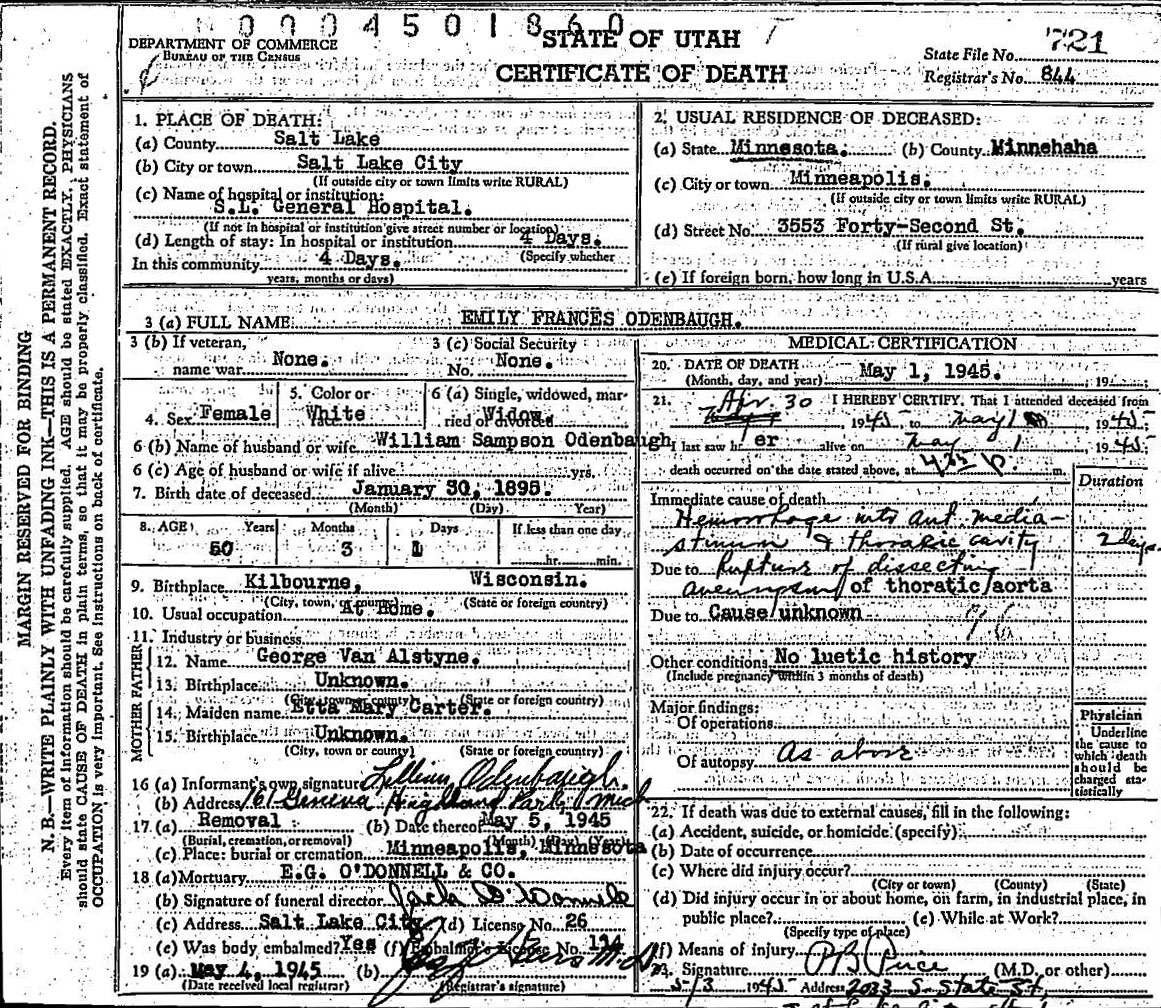 0 0 0 4 5 0 1 8 6 0
DEPARTMENT OF COMMERCE
BUREAU OF THE CENSUS
STATE OF UTAH
CERTIFICATE OF DEATH
State File No. 721
Registrar's No. 844
MARGIN RESERVED FOR BINDING
N. B.—WRITE PLAINLY WITH UNFADING INK—THIS IS A PERMANENT RECORD.
Every item of information should be carefully supplied. AGE should be stated EXACTLY. PHYSICIANS
should state CAUSE OF DEATH in plain terms, so that it may be properly classified. Exact statement of
OCCUPATION is very important. See instructions on back of certificate.
1. PLACE OF DEATH:
(a) County Salt Lake
(b) City or town Salt Lake City
(If outside city or town limits write RURAL)
(c) Name of hospital or institution:
S.L. General Hospital.
(If not in hospital or institution give street number or location)
(d) Length of stay: In hospital or institution 4 Days.
(Specify whether
In this community 4 Days.
years, months or days)
2. USUAL RESIDENCE OF DECEASED:
(a) State Minnesota. (b) County Minnehaha
(c) City or town Minneapolis.
(If outside city or town limits write RURAL)
(d) Street No. 3553 Forty-Second St.
(If rural give location)
(e) If foreign born, how long in U.S.A. years
3 (a) FULL NAME EMILY FRANCES ODENBAUGH.
3 (b) If veteran,
name war None.
3 (c) Social Security
No. None.
4. Sex Female
5. Color or
race White
6 (a) Single, widowed, mar-
ried or divorced Widow.
6 (b) Name of husband or wife William Sampson Odenbaugh
6 (c) Age of husband or wife if alive yrs.
7. Birth date of deceased January 30, 1895.
(Month) (Day) Year)
8. AGE Years Months Days If less than one day
50 3 1 hr. min.
9. Birthplace Kilbourne, Wisconsin.
(City, town, or county) (State or foreign country)
10. Usual occupation At Home.
11. Industry or business
FATHER
12. Name George Van Alstyne.
13. Birthplace Unknown.
(City, town or county) (State or foreign country)
MOTHER
14. Maiden name Etta Mary Carter.
15. Birthplace Unknown.
(City, town or county) (State or foreign country)
16 (a) Informant's own signature Lillian Odenbaugh.
(b) Address 161 Geneva Highland Park, Mich
17 (a) Removal (b) Date thereof May 5, 1945
(Burial, cremation, or removal) (Month) (Day) (Year)
(c) Place: burial or cremation Minneapolis, Minnesota
18 (a) Mortuary E.G. O'DONNELL & CO.
(b) Signature of funeral director Jack O'Donnell
(c) Address Salt Lake City (d) License No. 26
(e) Was body embalmed? Yes (f) Embalmer's License No. 114
19 (a) May 4, 1945 (b) M.D.
(Date received local registrar) (Registrar's signature)
MEDICAL CERTIFICATION
20. DATE OF DEATH May 1, 1945.
(Month, day, and year) 19
21. I HEREBY CERTIFY. That I attended deceased from
Apr. 30 1945 to May 1 1945
I last saw h er alive on May 1, 1945
death occurred on the date stated above, at 4 25 P. m.
Duration
Immediate cause of death
Hemorrhage into ant. media-
stinum & thoracic cavity 2 days.
Due to Rupture of dissecting
aneurysm of thoratic aorta
Due to Cause unknown
96
Other conditions No luetic history
(Include pregnancy within 3 months of death)
Major findings:
Of operations
Of autopsy As above
Physician
Underline
the cause to
which death
should be
charged sta-
tistically
22. If death was due to external causes, fill in the following:
(a) Accident, suicide, or homicide (specify)
(b) Date of occurrence
(c) Where did injury occur?
(City or town) (County) (State)
(d) Did injury occur in or about home, on farm, in industrial place, in
public place? (e) While at Work?
(Specify type of place)
(f) Means of injury
23. Signature PB Price (M.D. or other)
5/3 1945 Address 2033 S. State St.